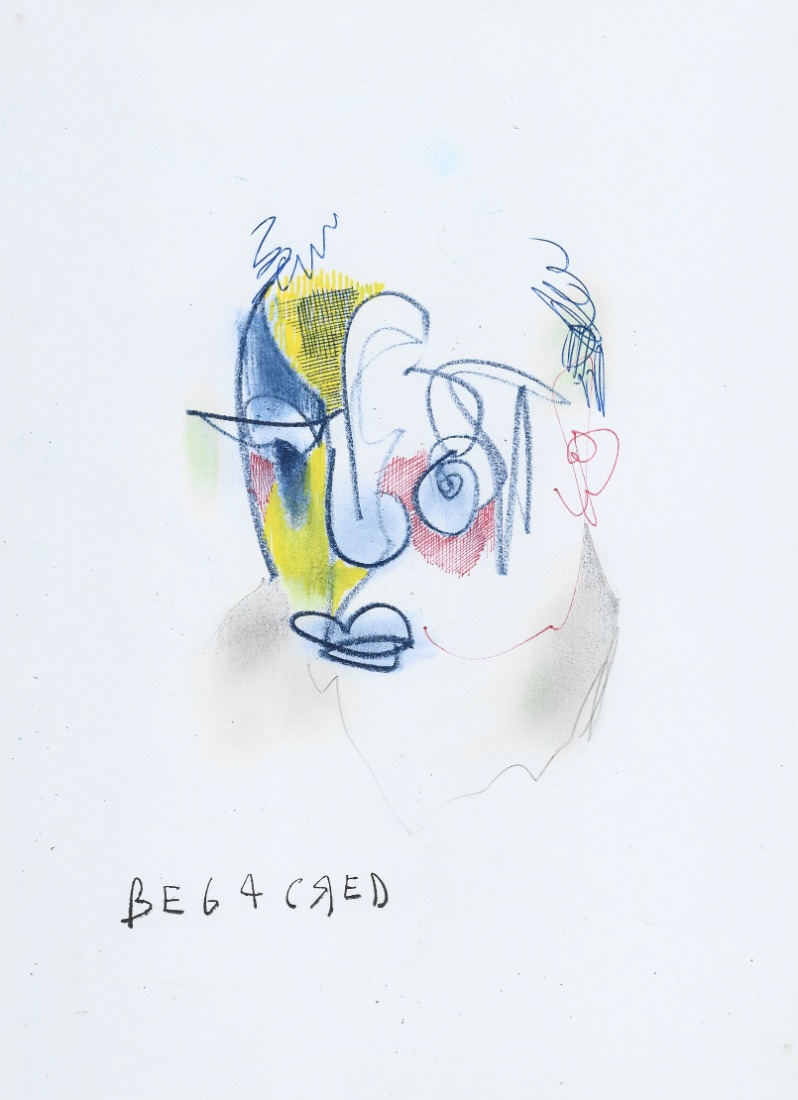 BE64CЯED